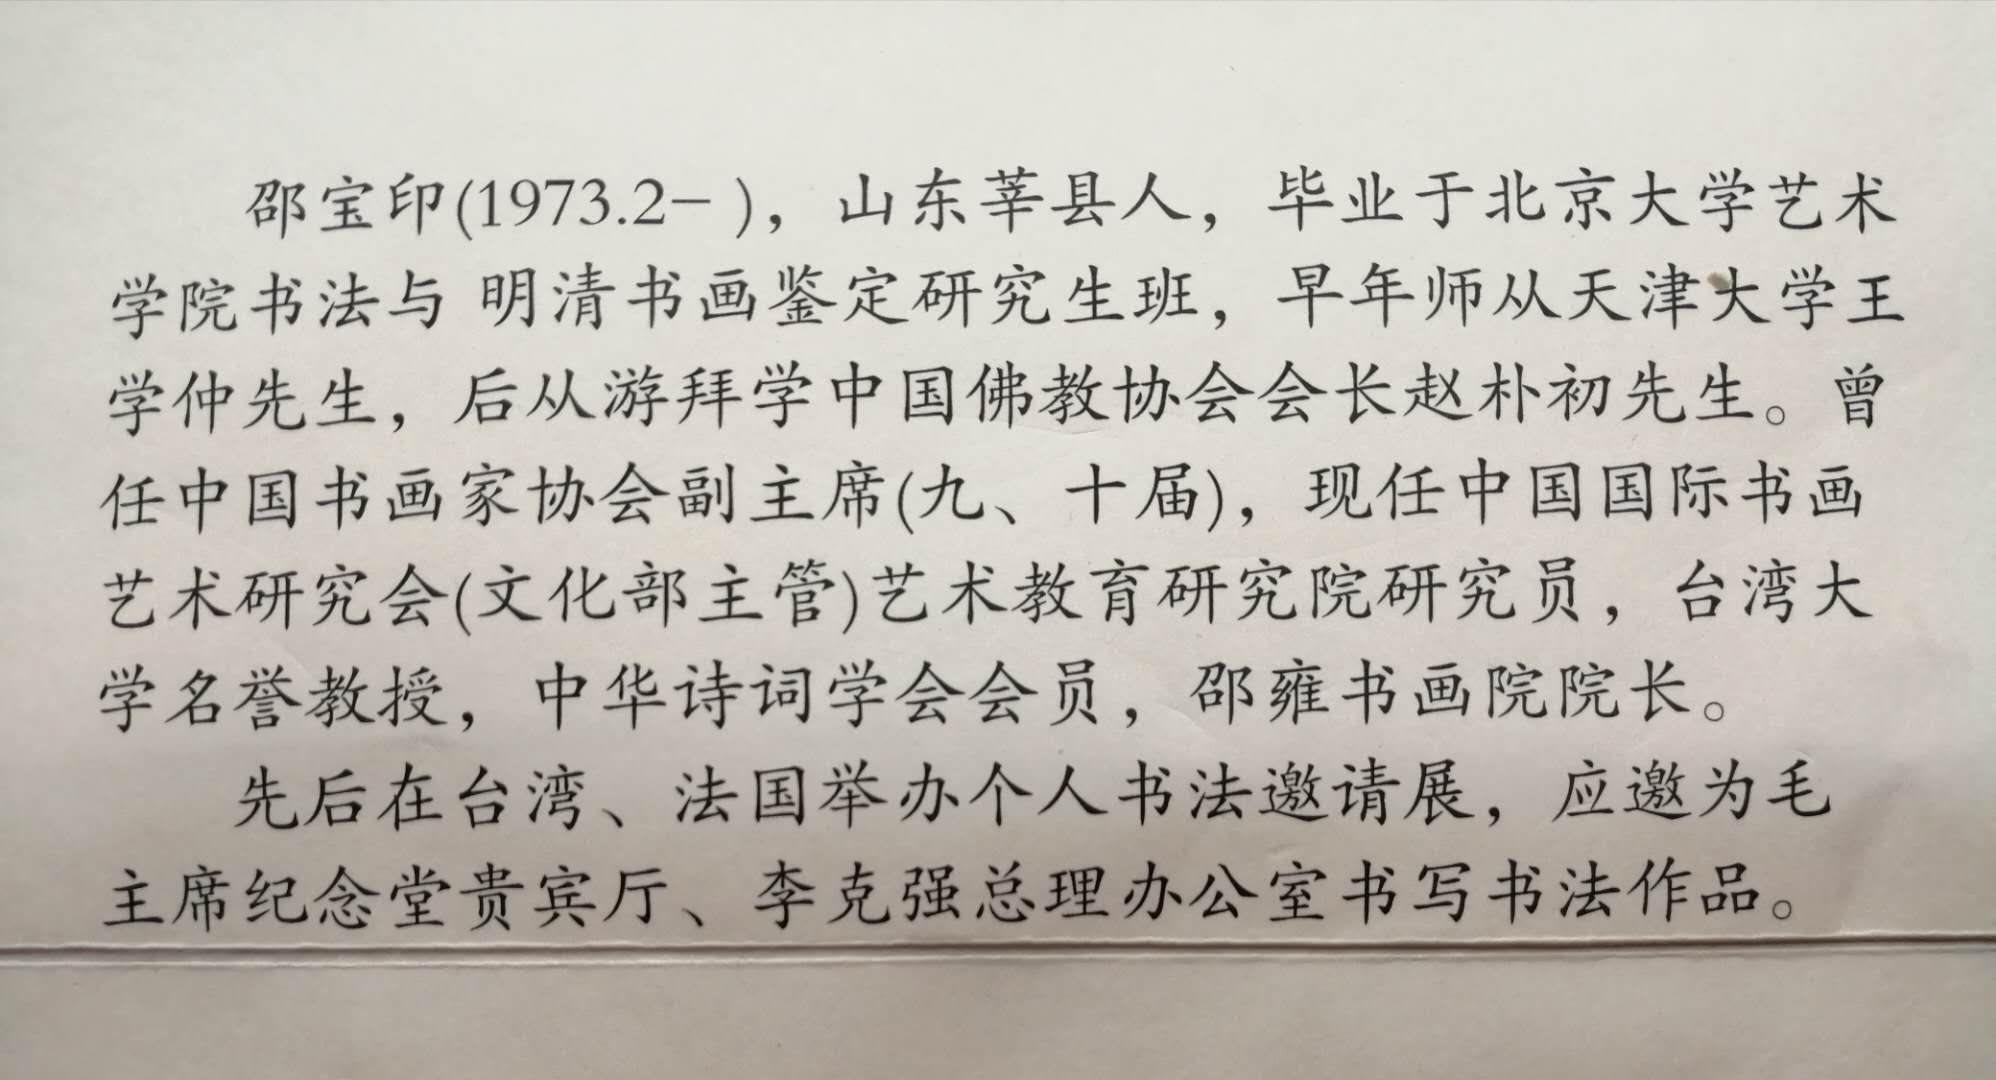 邵宝印(1973.2- )，山东莘县人，毕业于北京大学艺术
学院书法与 明清书画鉴定研究生班，早年师从天津大学王
学仲先生，后从游拜学中国佛教协会会长赵朴初先生。曾
任中国书画家协会副主席(九、十届)，现任中国国际书画
艺术研究会(文化部主管)艺术教育研究院研究员，台湾大
学名誉教授，中华诗词学会会员，邵雍书画院院长。
先后在台湾、法国举办个人书法邀请展，应邀为毛
主席纪念堂贵宾厅、李克强总理办公室书写书法作品。